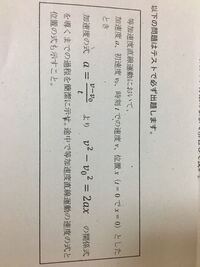 以下の問題はテストで必ず出題します。
等加速度直線運動において、
加速度 a、初速度 v₀、時刻 t での速度 v、位置 x（t = 0 で x = 0）とした
とき
加速度の式 a = (v − v₀)/t より v² − v₀² = 2ax の関係式
を導くまでの過程を簡潔に示せ。途中で等加速度直線運動の速度の式と
位置の式も示すこと。